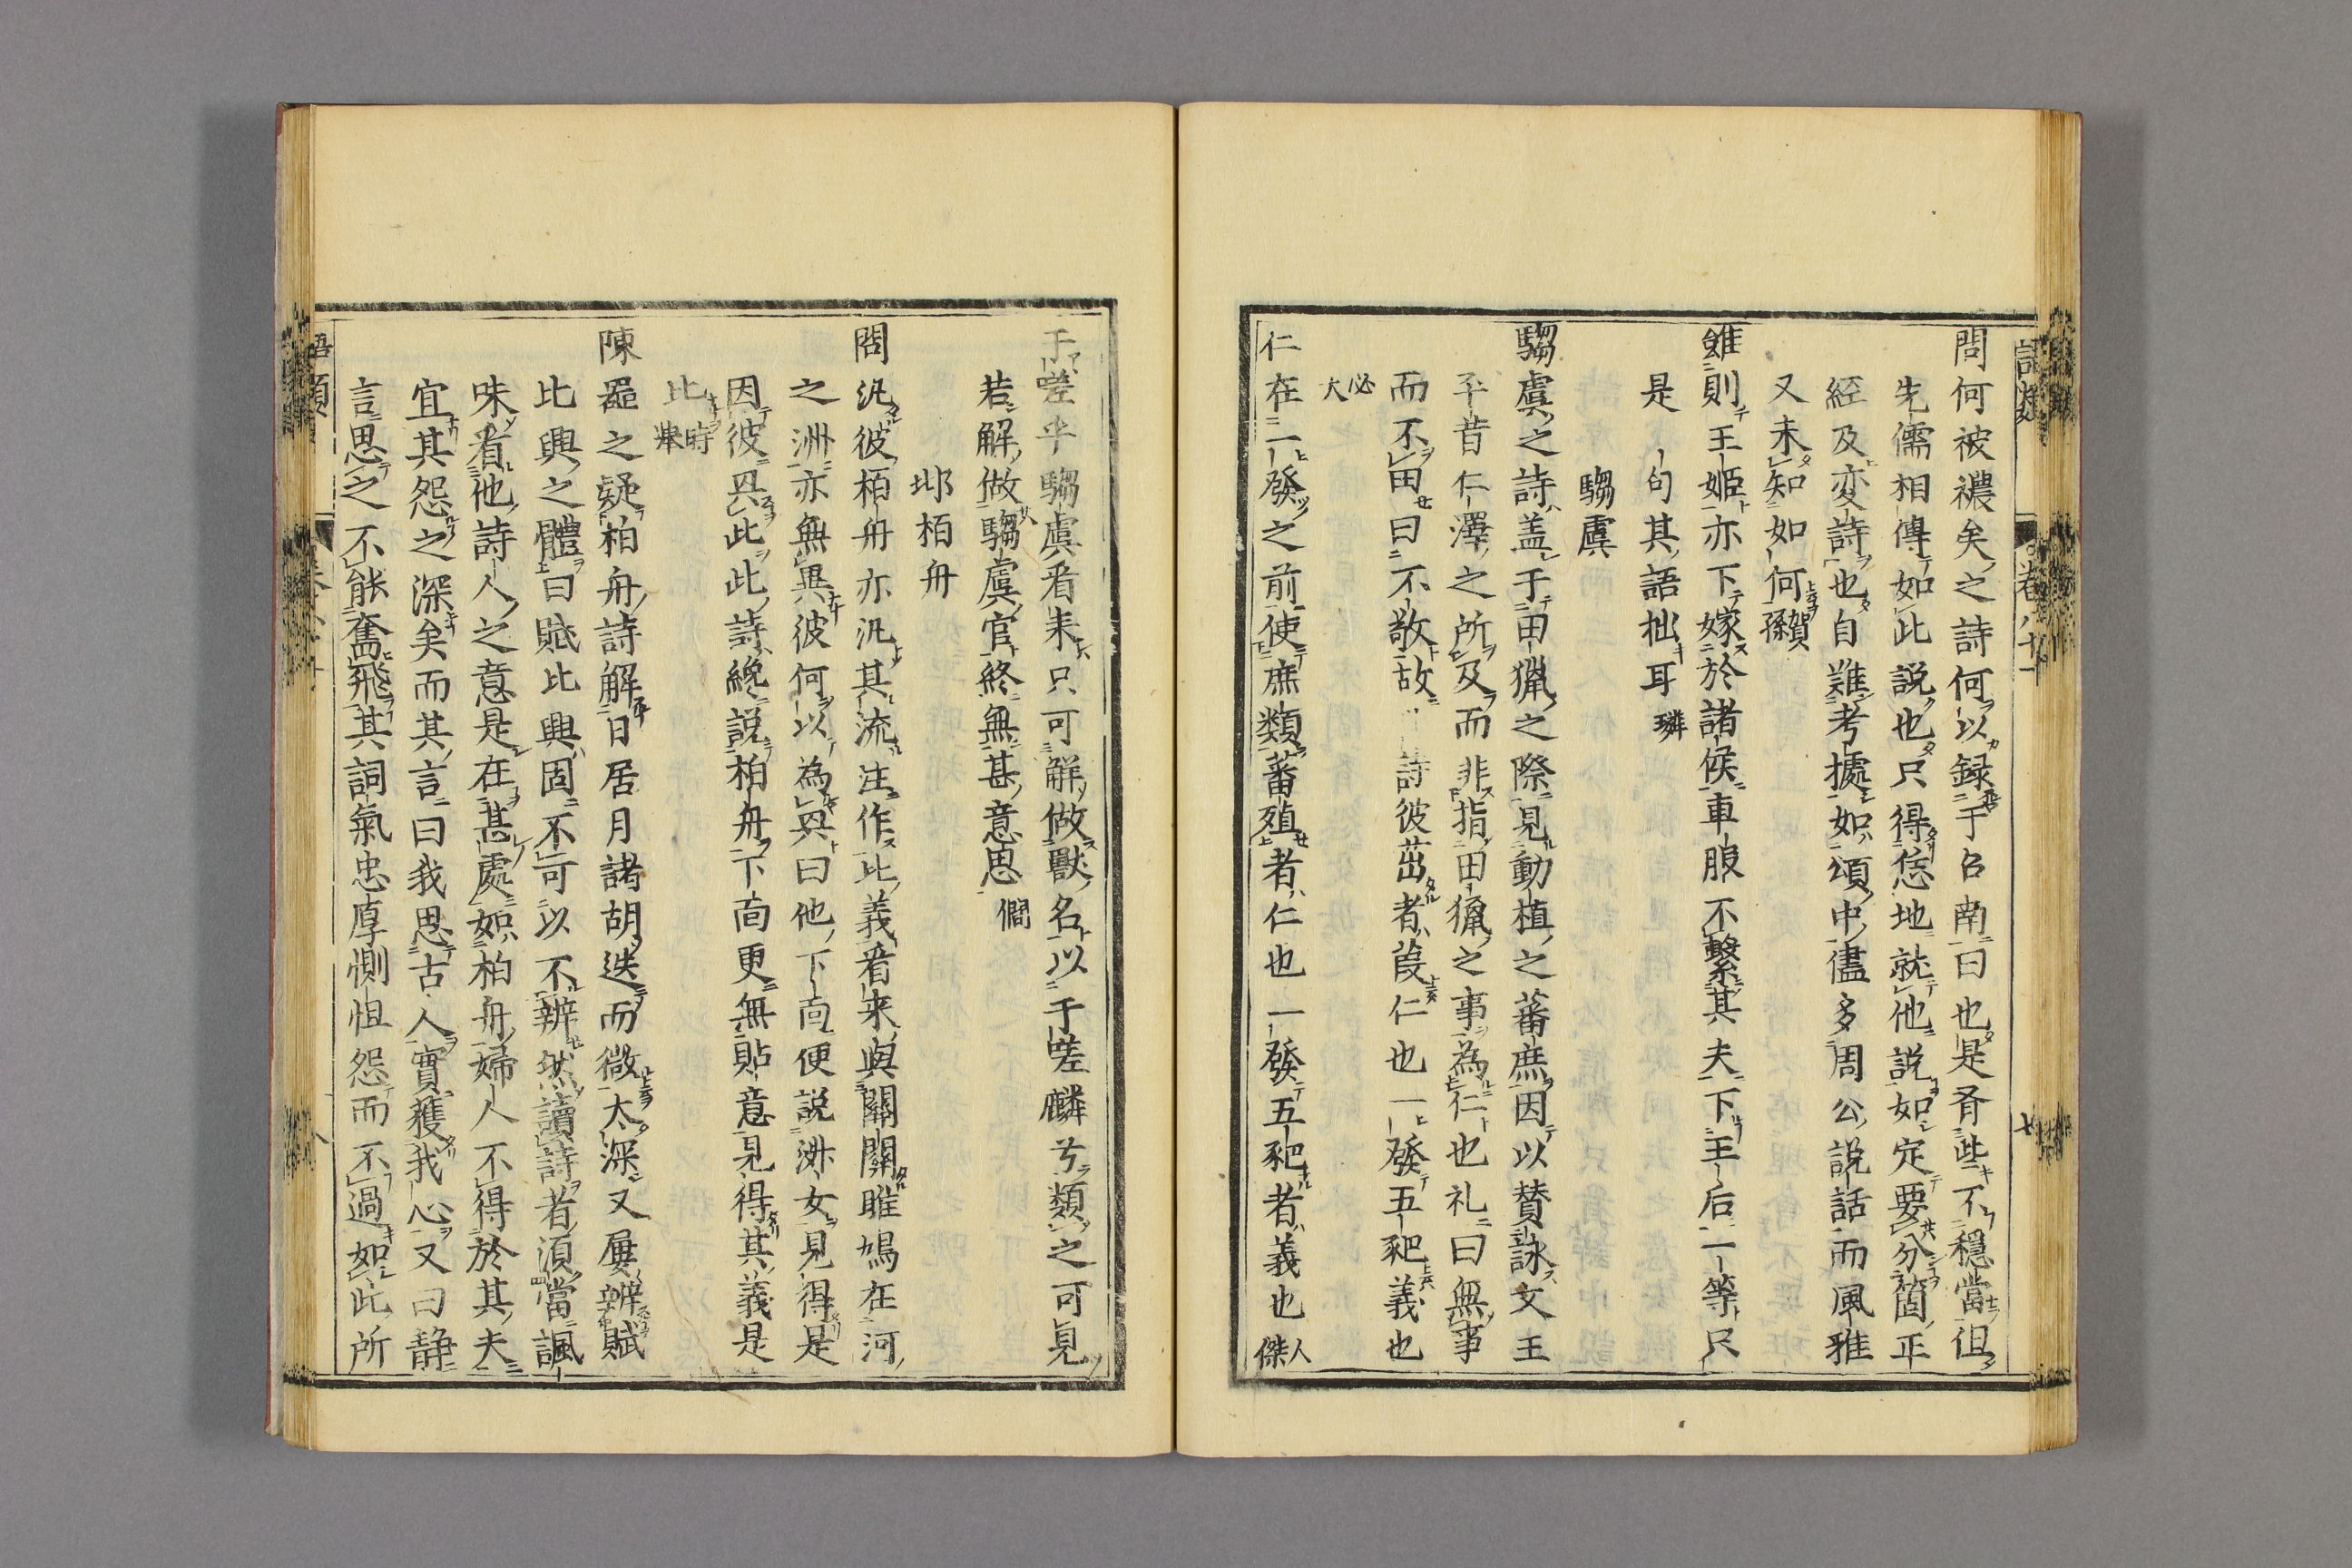 問何被禯矣之詩何以録于召南曰也是有些不穩當但
先儒相傳如此説也只得恁地就他説如定要分箇正
經及変詩也自難考據如頌中儘多周公説話而風雅
又未知如何賀孫
雖則王姬亦下嫁於諸侯車服不繫其夫下王后一等只
是一句其語拙耳璘
騶虞
騶虞之詩盖于田獵之際見動植之蕃庶因以賛詠文王
平昔仁澤之所及而非指田獵之事為仁也礼曰無事
而不田曰不敬故詩彼茁者葭仁也一發五豝義也
必大
仁在一發之前使庶類蕃殖者仁也一發五豝者義也人傑
于嗟乎騶虞看来只可解做獸名以于嗟麟兮類之可見
若解做騶虞官終無甚意思僩
邶栢舟
問汎彼栢舟亦汎其流注作比義看来與關關雎鳩在河
之洲亦無異彼何以為興曰他下面便説淑女見得是
因彼興此此詩纔説栢舟下面更無貼意見得其義是
比時舉
陳器之疑柏舟詩解日居月諸胡迭而微太深又屢辨賦
比興之體曰賦比興固不可以不辨然讀詩者須當諷
味看他詩人之意是在甚處如柏舟婦人不得於其夫
宜其怨之深矣而其言曰我思古人實獲我心又曰静
言思之不能奮飛其詞氣忠厚惻怛怨而不過如此所
語類
卷八十一
廿